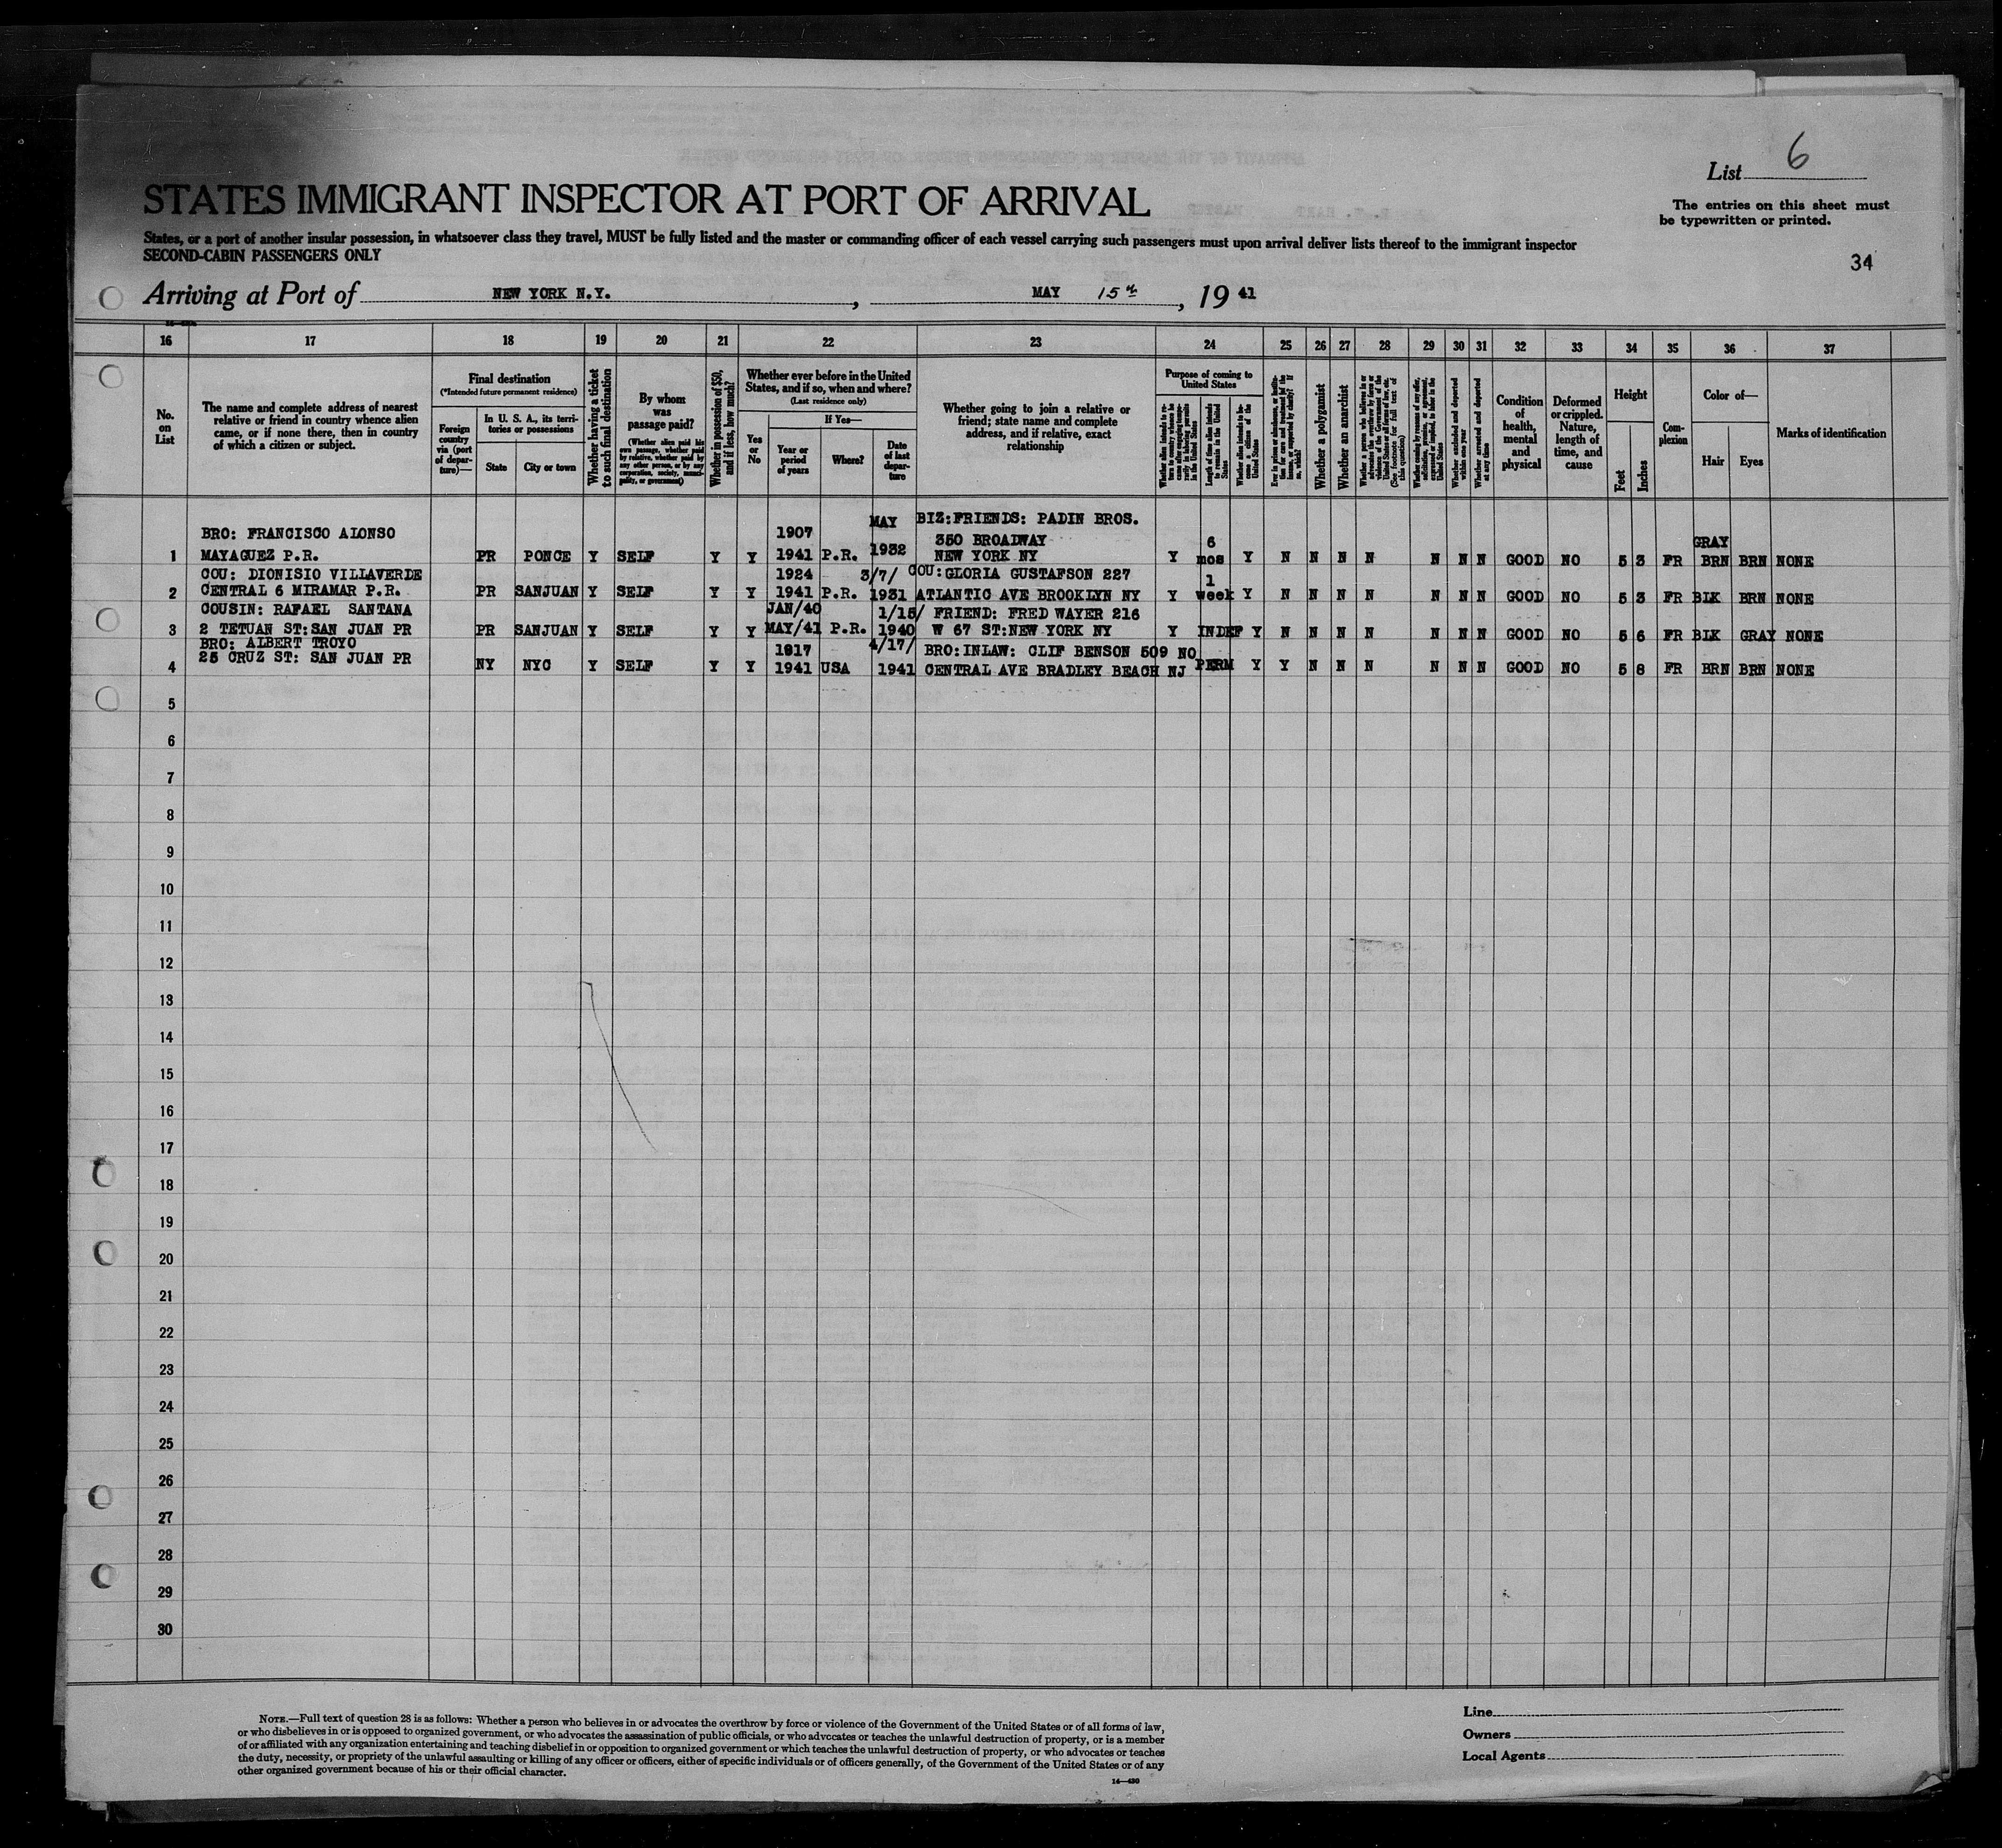 List 6
The entries on this sheet must
be typewritten or printed.
STATES IMMIGRANT INSPECTOR AT PORT OF ARRIVAL
States, or a port of another insular possession, in whatsoever class they travel, MUST be fully listed and the master or commanding officer of each vessel carrying such passengers must upon arrival deliver lists thereof to the immigrant inspector
SECOND-CABIN PASSENGERS ONLY
34
Arriving at Port of NEW YORK N.Y. , MAY 15th , 19 41
16 17 18 19 20 21 22 23 24 25 26 27 28 29 30 31 32 33 34 35 36 37
No.
on
List
The name and complete address of nearest
relative or friend in country whence alien
came, or if none there, then in country
of which a citizen or subject.
Final destination
(*Intended future permanent residence)
Foreign
country
via (port
of depar-
ture)—
In U. S. A., its terri-
tories or possessions
State
City or town
Whether having a ticket
to such final destination
By whom
was
passage paid?
(Whether alien paid his
own passage, whether paid
by relative, whether paid by
any other person, or by any
corporation, society, munici-
pality, or government)
Whether in possession of $50,
and if less, how much?
Whether ever before in the United
States, and if so, when and where?
(Last residence only)
Yes
or
No
If Yes—
Year or
period
of years
Where?
Date
of last
depar-
ture
Whether going to join a relative or
friend; state name and complete
address, and if relative, exact
relationship
Purpose of coming to
United States
Length of time alien intends
to remain in the United
States
Whether alien intends to be-
come a citizen of the
United States
Whether a polygamist
Whether an anarchist
Whether excluded and deported
within one year
Whether arrested and deported
at any time
Condition
of
health,
mental
and
physical
Deformed
or crippled.
Nature,
length of
time, and
cause
Height
Feet
Inches
Com-
plexion
Color of—
Hair
Eyes
Marks of identification
BRO: FRANCISCO ALONSO 1907 MAY BIZ:FRIENDS: PADIN BROS.
350 BROADWAY 6 GRAY
1 MAYAGUEZ P.R. PR PONCE Y SELF Y Y 1941 P.R. 1932 NEW YORK NY Y mos Y N N N N N N N GOOD NO 5 3 FR BRN BRN NONE
COU: DIONISIO VILLAVERDE 1924 3/7/ COU:GLORIA GUSTAFSON 227 1
2 CENTRAL 6 MIRAMAR P.R. PR SANJUAN Y SELF Y Y 1941 P.R. 1931 ATLANTIC AVE BROOKLYN NY Y week Y N N N N N N N GOOD NO 5 3 FR BLK BRN NONE
COUSIN: RAFAEL SANTANA JAN/40 1/15/ FRIEND: FRED WAYER 216
3 2 TETUAN ST:SAN JUAN PR PR SANJUAN Y SELF Y Y MAY/41 P.R. 1940 W 67 ST:NEW YORK NY Y INDEF Y N N N N N N N GOOD NO 5 6 FR BLK GRAY NONE
BRO: ALBERT TROYO 1917 4/17/ BRO:INLAW: CLIF BENSON 509 NO
4 25 CRUZ ST: SAN JUAN PR NY NYC Y SELF Y Y 1941 USA 1941 CENTRAL AVE BRADLEY BEACH NJ PERM Y Y N N N N N N GOOD NO 5 8 FR BRN BRN NONE
5
6
7
8
9
10
11
12
13
14
15
16
17
18
19
20
21
22
23
24
25
26
27
28
29
30
NOTE.—Full text of question 28 is as follows: Whether a person who believes in or advocates the overthrow by force or violence of the Government of the United States or of all forms of law,
or who disbelieves in or is opposed to organized government, or who advocates the assassination of public officials, or who advocates or teaches the unlawful destruction of property, or is a member
of or affiliated with any organization entertaining and teaching disbelief in or opposition to organized government or which teaches the unlawful destruction of property, or who advocates or teaches
the duty, necessity, or propriety of the unlawful assaulting or killing of any officer or officers, either of specific individuals or of officers generally, of the Government of the United States or of any
other organized government because of his or their official character.
16—430
Line
Owners
Local Agents